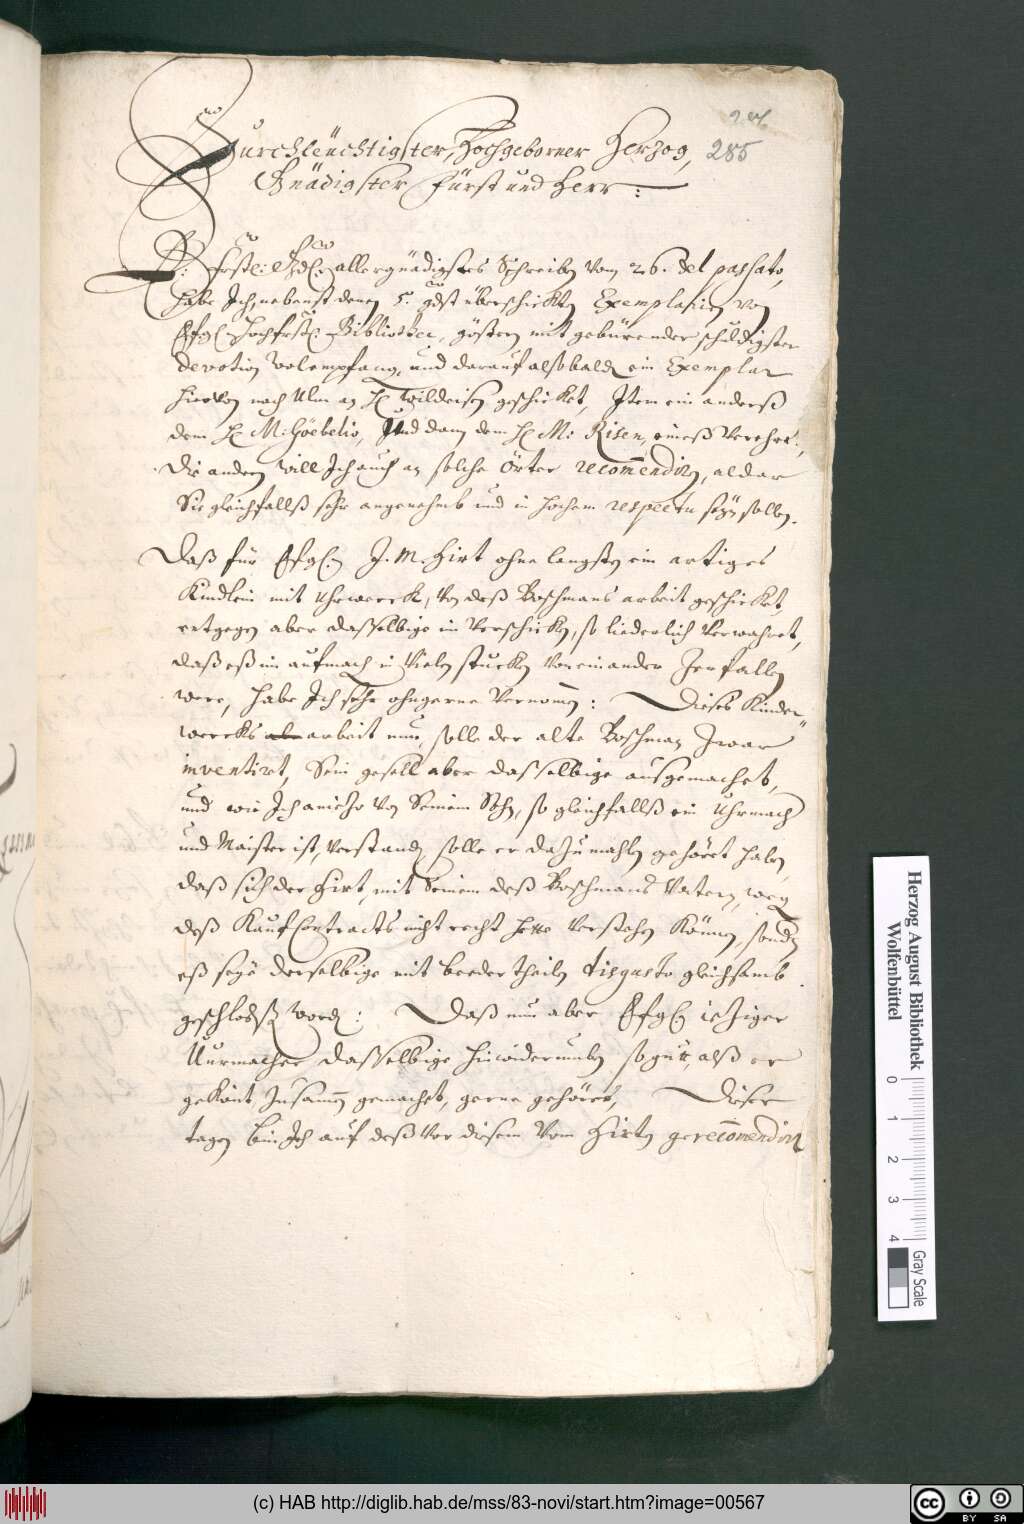 246
285
Durchleüchtigster, Hochgeborner Herzog,
Gnädigster Fürst und Herr:
E: Frstl: Gdl: allergnädigstes Schreiben vom 26. del passato,
habe Ich, nebenst denen 5. gdst überschickten Exemplarien von
Efgl: Hochfrstl: Bibliothec, gestern mit gebürender schuldigster
devotion wol empfangen, und darauf alsobald ein Exemplar
hiervon nach Ulm an H: Wildeisen geschicket, Item ein anderß
dem H: M: Göebelio, Und dann dem H: M: Risen, eineß verehrt,
Die andern will Ich auch an solche örter recom̄endirn, alda
Sie gleichfallß sehr angenehmb und in hochem respectu seyn sollen.
Daß für Efgl: J. M. Hirt ohne lengsten ein artiges
Kindlein mit Uhrwerck, von deß Boschmans arbeit geschicket,
entgegen aber dasselbige im verschicken, so liederlich verwahret,
daß eß im aufmach in vielen stucken von einander Zerfallen
were, habe Ich sehr ohngerne vernom̄en: Dieses Kinder
wercks arbeit nun, solle der alte Boschman zwar
inventirt, Sein gesell aber dasselbige ausgemachet,
und wie Ich anietzo von Seinem Sohn, so gleichfallß ein Uhrmach
und Maister ist, verstanden, solle er dazumahlen gehört haben,
daß sich der Hirt, mit Seinem deß Boschmans Vatern, wegen
deß Kauf Contracts nicht recht hette verstehen können, sondern
eß seye derselbige mit beeder theilen disgusto gleichsamb
geschlossen worden: Daß nun aber Efgl: ietziger
Uurmacher dasselbige hinwiderumben so gutt, alß er
gekönt, zusamen gemachet, gerne gehöret, Dieser
tagen bin Ich auf deß vor diesem vom Hirten gerecom̄endirten
Herzog August Bibliothek
Wolfenbüttel
0 1 2 3 4
Gray Scale
(c) HAB http://diglib.hab.de/mss/83-novi/start.htm?image=00567
cc BY SA